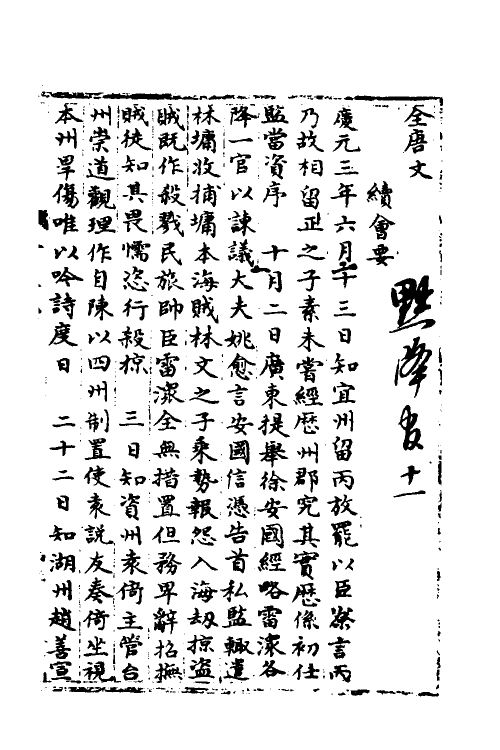 全唐文
續會要
黜降官十一
慶元三年六月二十三日知宜州留丙放罷以臣寮言丙
乃故相留正之子素未嘗經歷州郡究其實歷係初仕
監當資序 十月二日廣東提舉徐安國經略雷潨各
降一官以諫議大夫姚愈言安國信憑告首私監輙遣
林墉收捕墉本海賊林文之子乘勢報怨入海刼掠盜
賊既作殺戮民旅帥臣雷潨全無措置但務卑辭招撫
賊徒知其畏懦恣行殺掠 三日知資州袁倚主管台
州崇道觀理作自陳以四州制置使袁説友奏倚坐視
本州旱傷唯以吟詩度日 二十二日知湖州趙善宣